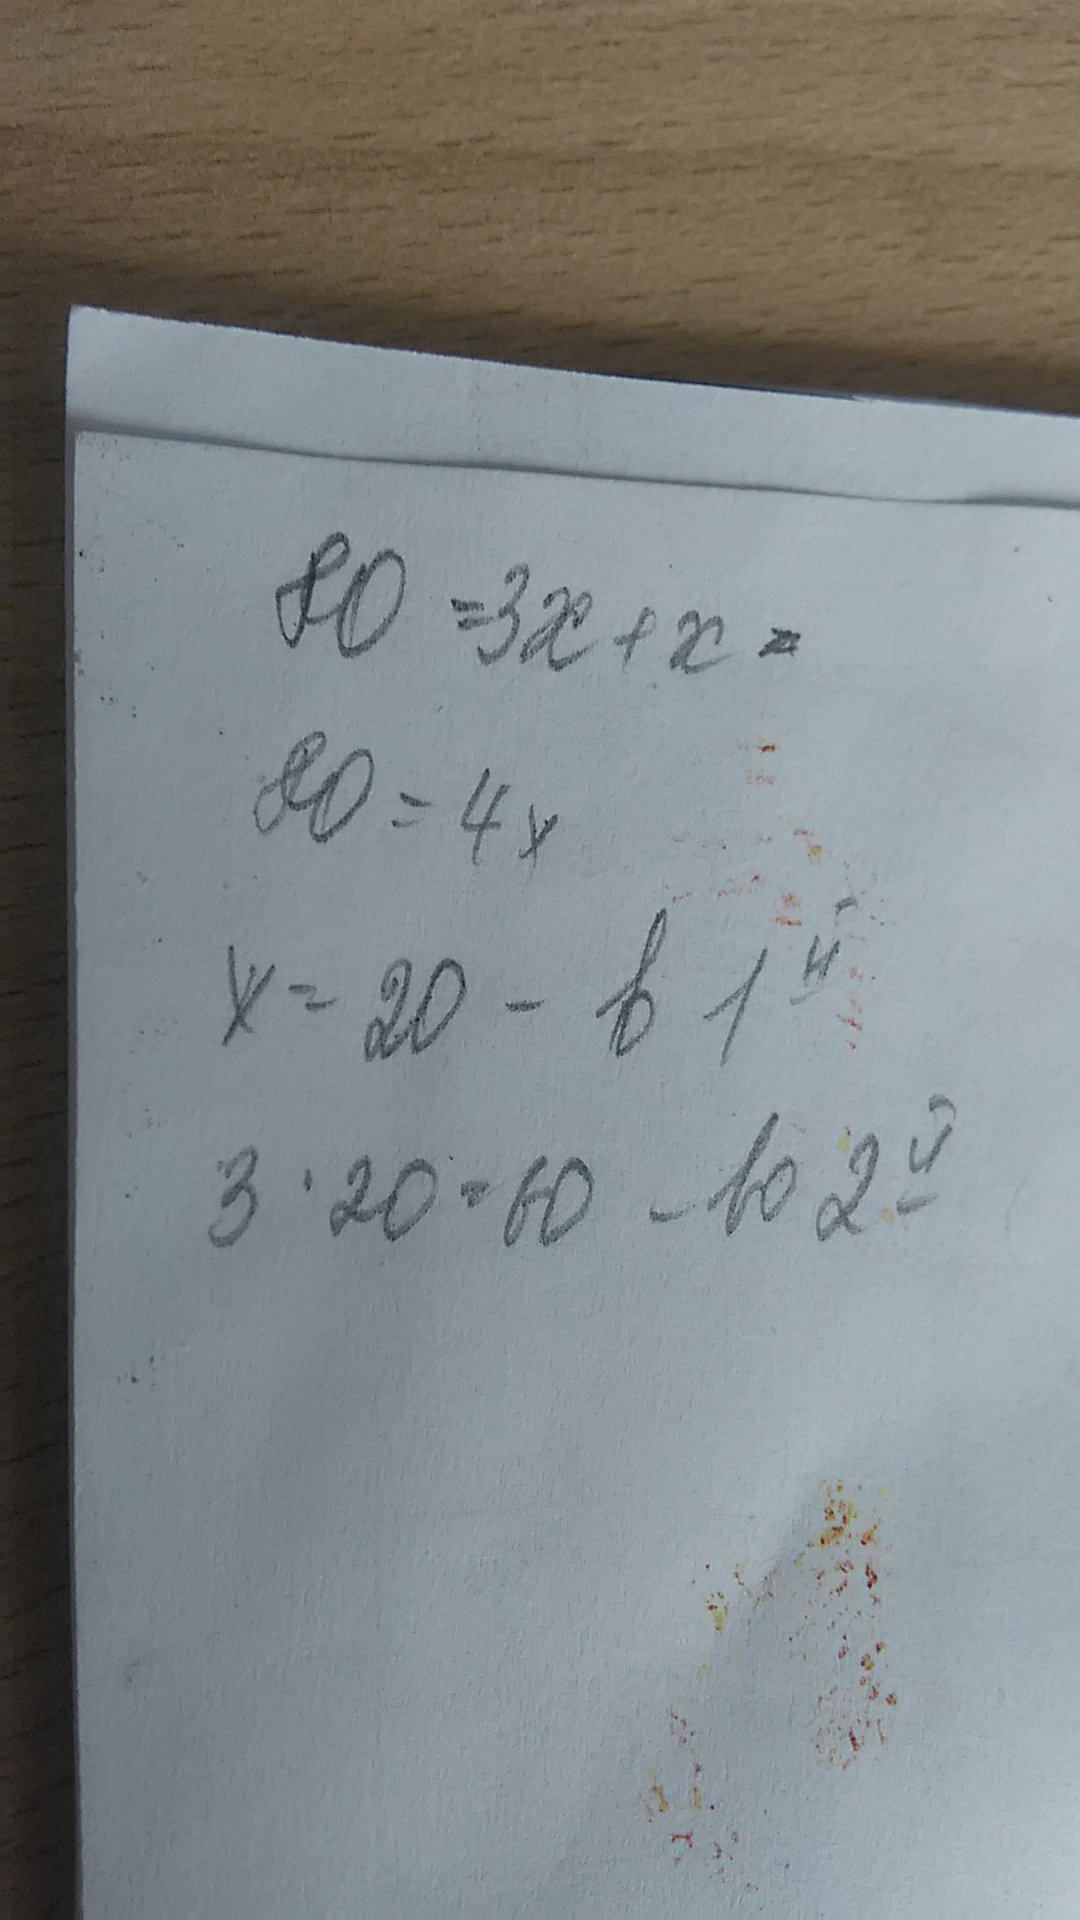 80 = 3x + x =
80 = 4x
x = 20 - в 1й
3 · 20 = 60 - во 2й